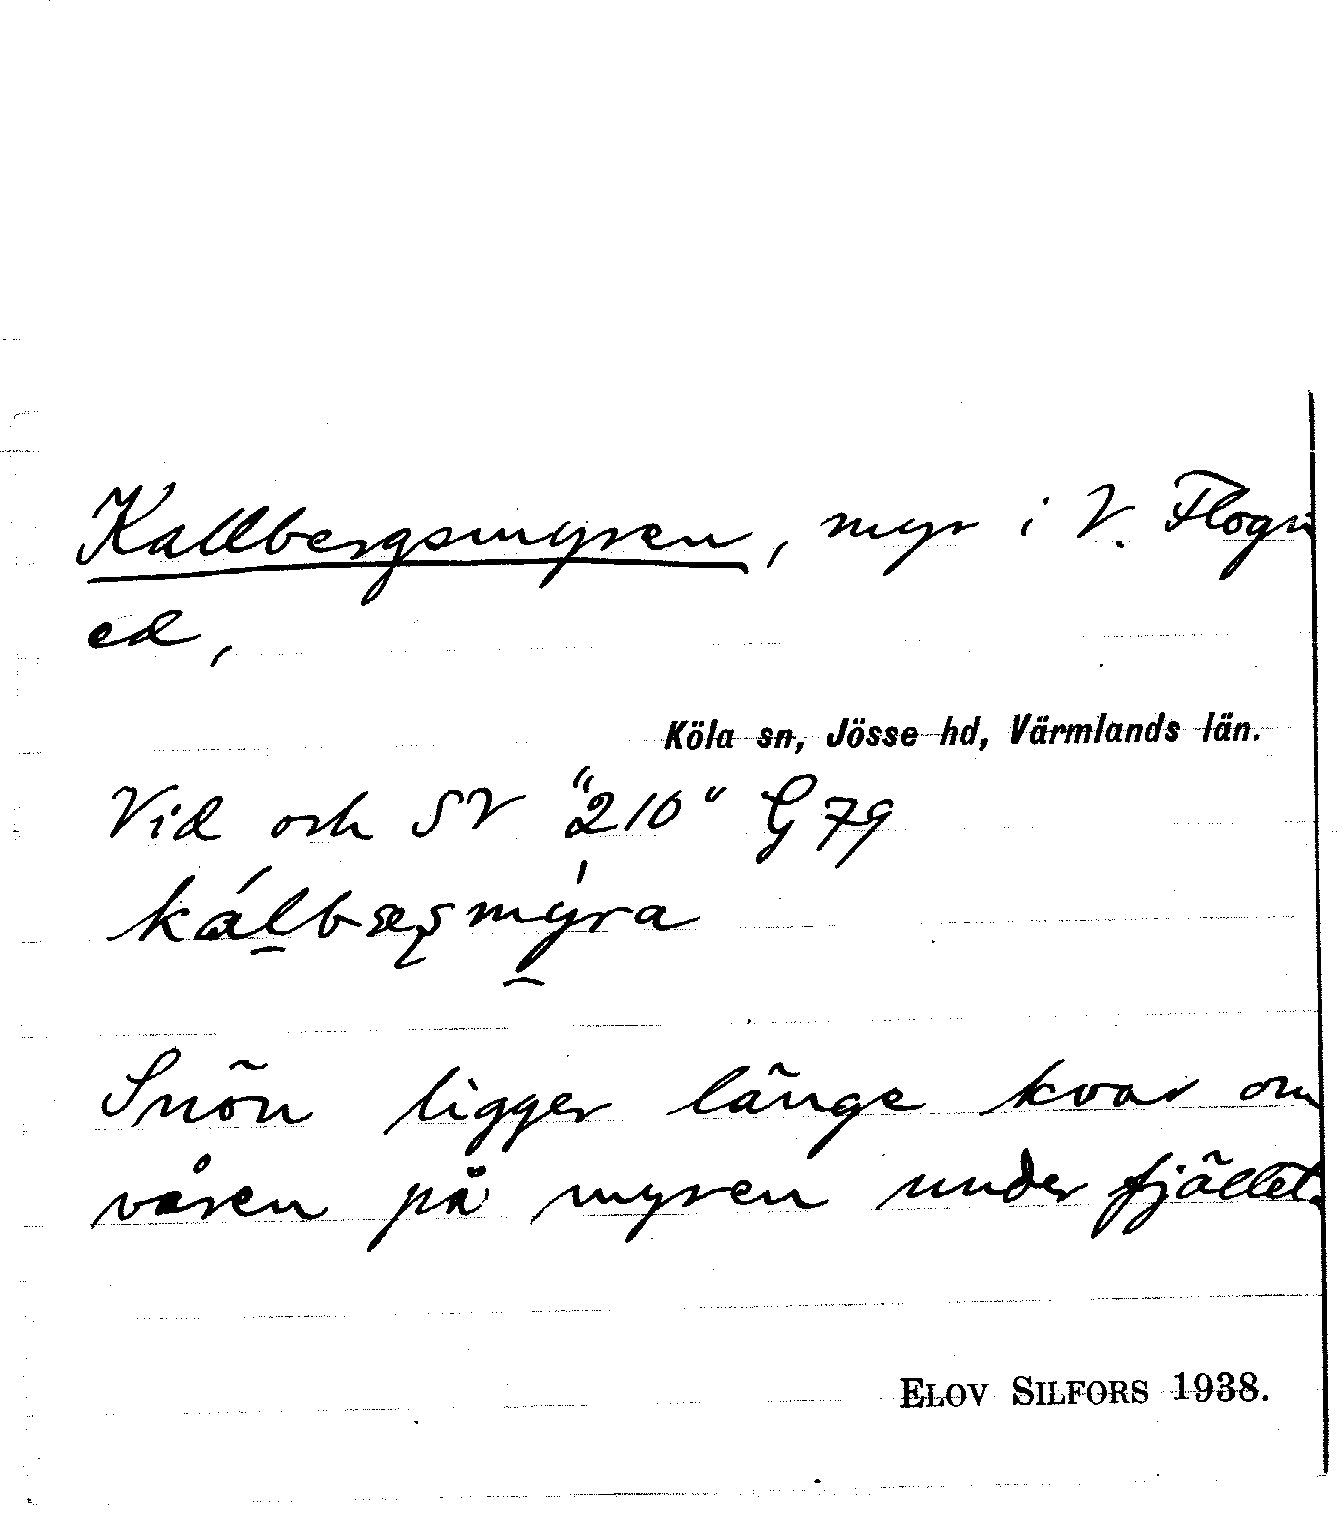 Kallbergsmyren, myr i V. Flogn
ed,
Köla sn, Jösse hd, Värmlands län.
Vid och SV "210" G 79
Snön ligger länge kvar om
våren på myren under fjället.
ELOV SILFORS 1938.